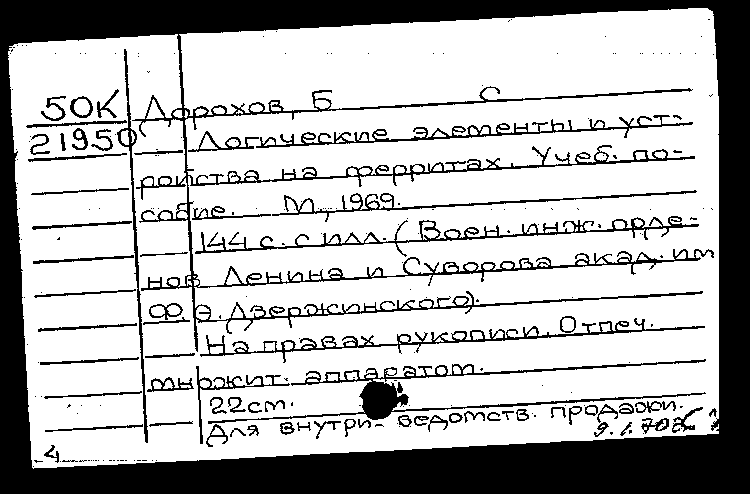 50К Дорохов, Б С
21950 Логические элементы и уст-
ройства на ферритах. Учеб. по-
собие. М., 1969.
144 с. с илл. (Воен. инж. орде-
нов Ленина и Суворова акад. им
Ф. Э. Дзержинского).
На правах рукописи. Отпеч.
множит. аппаратом.
22см.
Для внутри-ведомств. продажи.
4